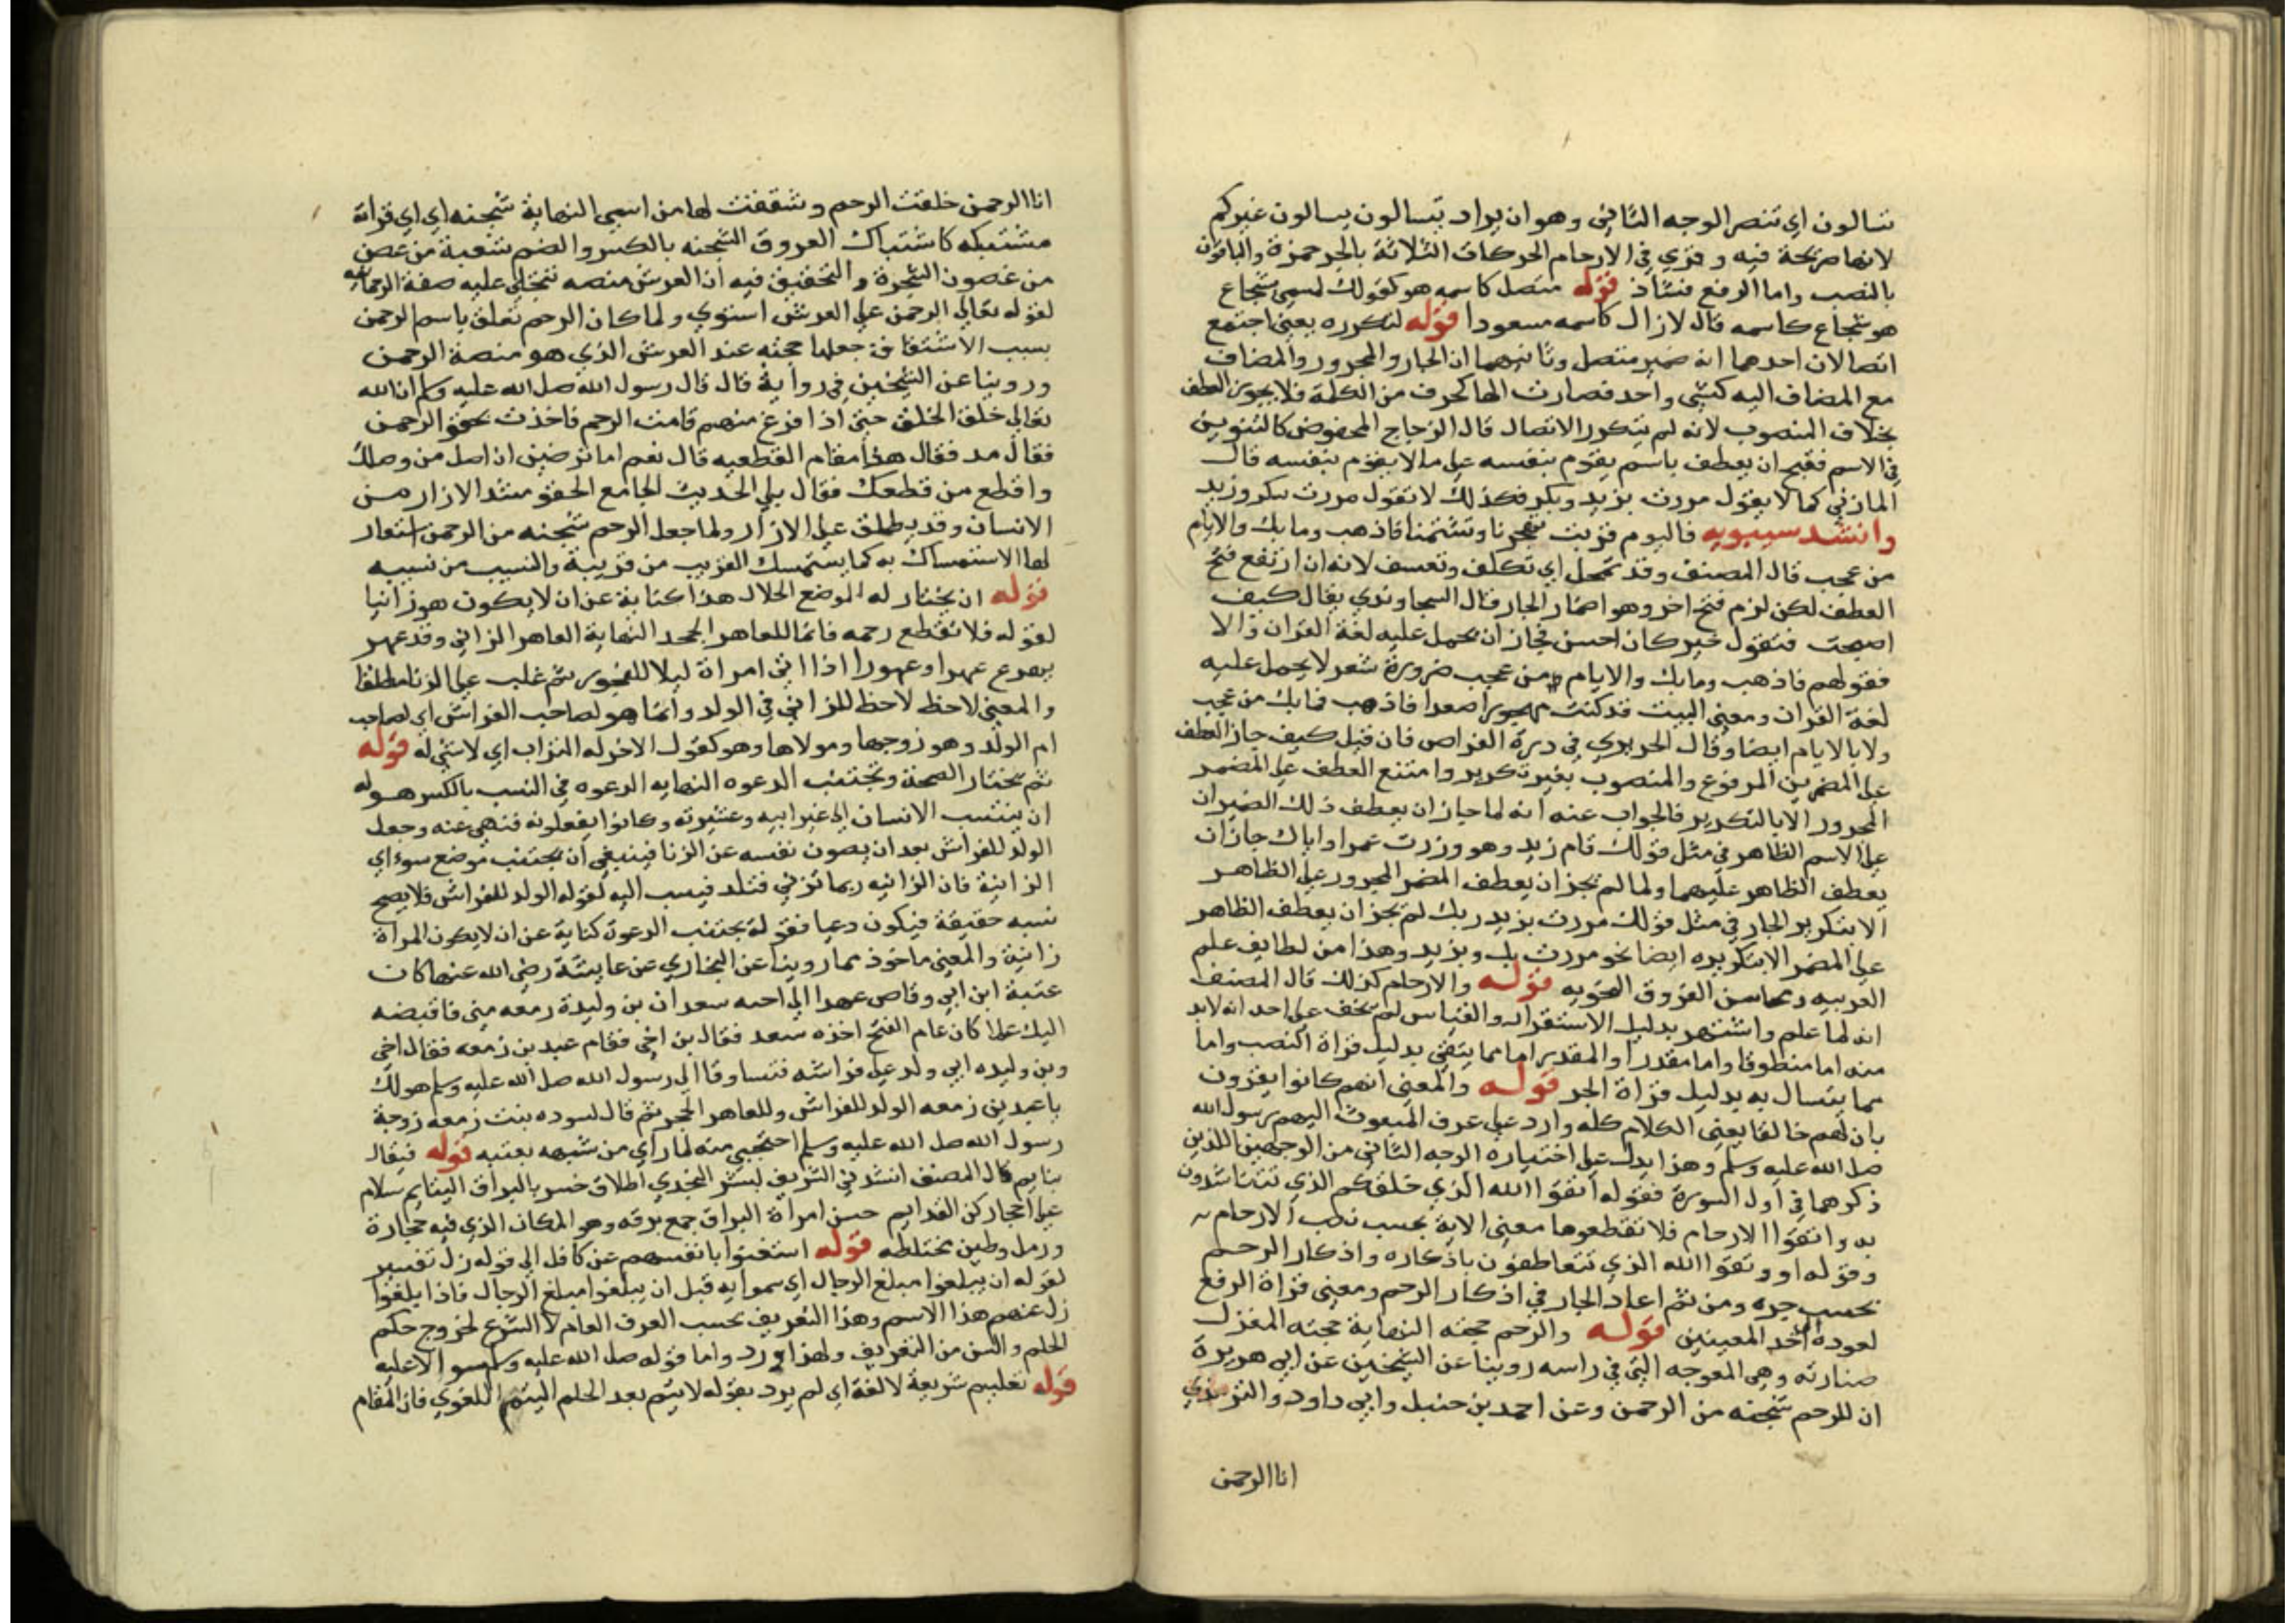 تسالون اي تنصر الوجه الثاني وهو ان يراد بتسالون يسالون غيركم
لانها صريحة فيه وقري في الارحام الحركات الثلاثة بالجر حمزة والباقون
بالنصب واما الرفع فشاذ قوله متصل كاسمه هو كقولك لسمي شجاع
هو شجاع كاسمه قال لازال كاسمه مسعودا قوله لتكرره يعني اجتمع
اتصالان احدهما انه ضمير متصل وثانيهما ان الجار والمجرور والمضاف
مع المضاف اليه كشي واحد فصارت الها كحرف من الكلمة فلا يجوز العطف
بخلاف المنصوب لانه لم يتكرر الاتصال قال الزجاج المخفوض كالتنوين
في الاسم فقبح ان يعطف باسم يقوم بنفسه علي ما لا يقوم بنفسه قال
المازني كما لا يقول مررت بزيد وبكر فكذلك لا تقول مررت بكر وزيد
وانشد سيبويه فاليوم قربت تهجرنا وتشتمنا فاذهب وما بك والايام
من عجب قال المصنف وقد تمحل اي تكلف وتعسف لانه ان ارتفع فتح
العطف لكن لزم فتح اخر وهو اضمار الجار قال السجاوندي يقال كيف
اصبحت فتقول خير كان احسن فجاز ان يحمل عليه لغة القران والا
فقولهم فاذهب وما بك والايام من عجب ضرورة شعر لا يحمل عليه
لغة القران ومعني البيت قد كنت مهجورا صعدا فاذهب فما بك من عجب
ولا بالايام ايضا وقال الحريري في درة الغواص فان قيل كيف جاز العطف
علي المضمرين المرفوع والمنصوب بغير تكرير وامتنع العطف علي المضمر
المجرور الا بالتكرير فالجواب عنه انه لما جاز ان يعطف ذلك الضميران
علي الاسم الظاهر في مثل قولك قام زيد وهو وزرت عمرا واياك جاز ان
يعطف الظاهر عليهما ولما لم يجز ان يعطف المضمر المجرور علي الظاهر
الا بتكرير الجار في مثل قولك مررت بزيد وبك لم يجز ان يعطف الظاهر
علي المضمر الا بتكريره ايضا نحو مررت بك وبزيد وهذا من لطايف علم
العربيه ومحاسن الفروق النحويه قوله والارحام كذلك قال المصنف
انه لما علم واشتهر بدليل الاستقراء والقياس لم يخف علي احد انه لا بد
منه اما منطوقا واما مقدرا والمقدير اما مما يتقي بدليل قراة النصب واما
مما يتسال به بدليل قراة الجر قوله والمعني انهم كانوا يقرون
بان لهم خالقا يعني الكلام كله وارد علي عرف المبعوث اليهم رسول الله
صل الله عليه وسلم وهذا يدل علي اختياره الوجه الثاني من الوجهين اللذين
ذكرهما في اول السورة فقوله اتقوا الله الذي خلقكم الذي تتناشدون
به واتقوا الارحام فلا تقطعوها معني الاية بحسب نصب الارحام
وقوله او وتقوا الله الذي تتعاطفون باذكاره واذكار الرحم
بحسب جره ومن ثم اعاد الجار في اذكار الرحم ومعني قراة الرفع
لعوده الي احد المعينين قوله والرحم حجنه النهاية حجنه المغزل
صنارته وهي المعوجه التي في راسه روينا عن الشيخين عن ابي هريرة
ان للرحم شجنه من الرحمن وعن احمد بن حنبل وابي داود والترمذي
انا الرحمن
انا الرحمن خلقت الرحم وشققت لها من اسمي النهاية شجنه اي اي قرابة
مشتبكه كاشتباك العروق الشجنه بالكسر والضم شعبة من غصن
من غصون الشجرة والتحقيق فيه ان العرش منصه تتجلي عليه صفة الرحمانيه
لقوله تعالي الرحمن علي العرش استوي ولما كان الرحم تعلق باسم الرحمن
بسبب الاشتقاق جعلها حجنه عند العرش الذي هو منصة الرحمن
وروينا عن الشيخين في رواية قال قال رسول الله صل الله عليه وسلم ان الله
تعالي خلق الخلق حتي اذا فرغ منهم قامت الرحم فاخذت بحقو الرحمن
فقال مه فقال هذا مقام القطعيه قال نعم اما ترضين ان اصل من وصلك
واقطع من قطعك فقال بلي الحديث الجامع الحقو مشد الازار من
الانسان وقد يطلق علي الازار ولما جعل الرحم شجنه من الرحمن استعار
لها الاستمساك به كما يستمسك القريب من قريبة والنسيب من نسيبه
قوله ان يختار له الموضع الحلال هذا كناية عن ان لا يكون هو زانيا
لقوله فلا تقطع رحمه فانما للعاهر الحجر النهاية العاهر الزاني وقد عهر
يهرع عهرا وعهورا اذا اتي امراة ليلا للفجور ثم غلب علي الزنا مطلقا
والمعني لاحظ لاحظ للزاني في الولد وانما هو لصاحب الفراش اي لصاحب
ام الولد وهو زوجها ومولاها وهو كقول الاخر له التراب اي لا شي له قوله
ثم يختار الصحة وتجتنب الدعوه النهايه الدعوه في النسب بالكسر هو
ان ينتسب الانسان الي غير ابيه وعشيرته وكانوا يفعلونه فنهي عنه وجعل
الولد للفراش بعد ان يصون نفسه عن الزنا فينبغي ان يجتنب موضع سوء اي
الزانية فان الزانيه ربما تزني فتلد فينسب اليه لقوله الولد للفراش فلا يصح
نسبه حقيقة فيكون دعيا فقوله يجتنب الدعوة كناية عن ان لا يكون المراة
زانية والمعني ماخوذ مما روينا عن البخاري عن عايشة رضي الله عنها كان
عتبة ابن ابي وقاص عهدا الي اخيه سعد ان بن وليدة زمعه مني فاقبضه
اليك فلما كان عام الفتح اخذه سعد فقال بن اخي فقام عبد بن زمعه فقال اخي
وبن وليده ابي ولد علي فراشه فتساوقا الي رسول الله صل الله عليه وسلم هو لك
يا عبد بن زمعه الولد للفراش وللعاهر الحجر ثم قال لسوده بنت زمعه زوجة
رسول الله صل الله عليه وسلم احتجبي منه لما راي من شبهه بعتبه قوله فيقال
يتايم قال المصنف انشد في الشريف لبشر النجدي اطلاق حسر بالبراق اليتايم سلام
علي احجاركن القدايم حسن امراة البراق جمع برقه وهو المكان الذي فيه حجارة
ورمل وطين مختلطه قوله استغنوا بانفسهم عن كافل الي قوله زل تفسير
لقوله ان يبلغوا مبلغ الرجال اي سموا به قبل ان يبلغوا مبلغ الرجال فاذا بلغوا
زل عنهم هذا الاسم وهذا التعريف بحسب العرف العام لا الشرع لخروج حكم
الحلم والسن من التعريف ولهذا ورد واما قوله صل الله عليه وسلم
قوله تعليم شريعة لا لغة اي لم يرد بقوله لا يتم بعد الحلم اليتم اللغوي فان المقام